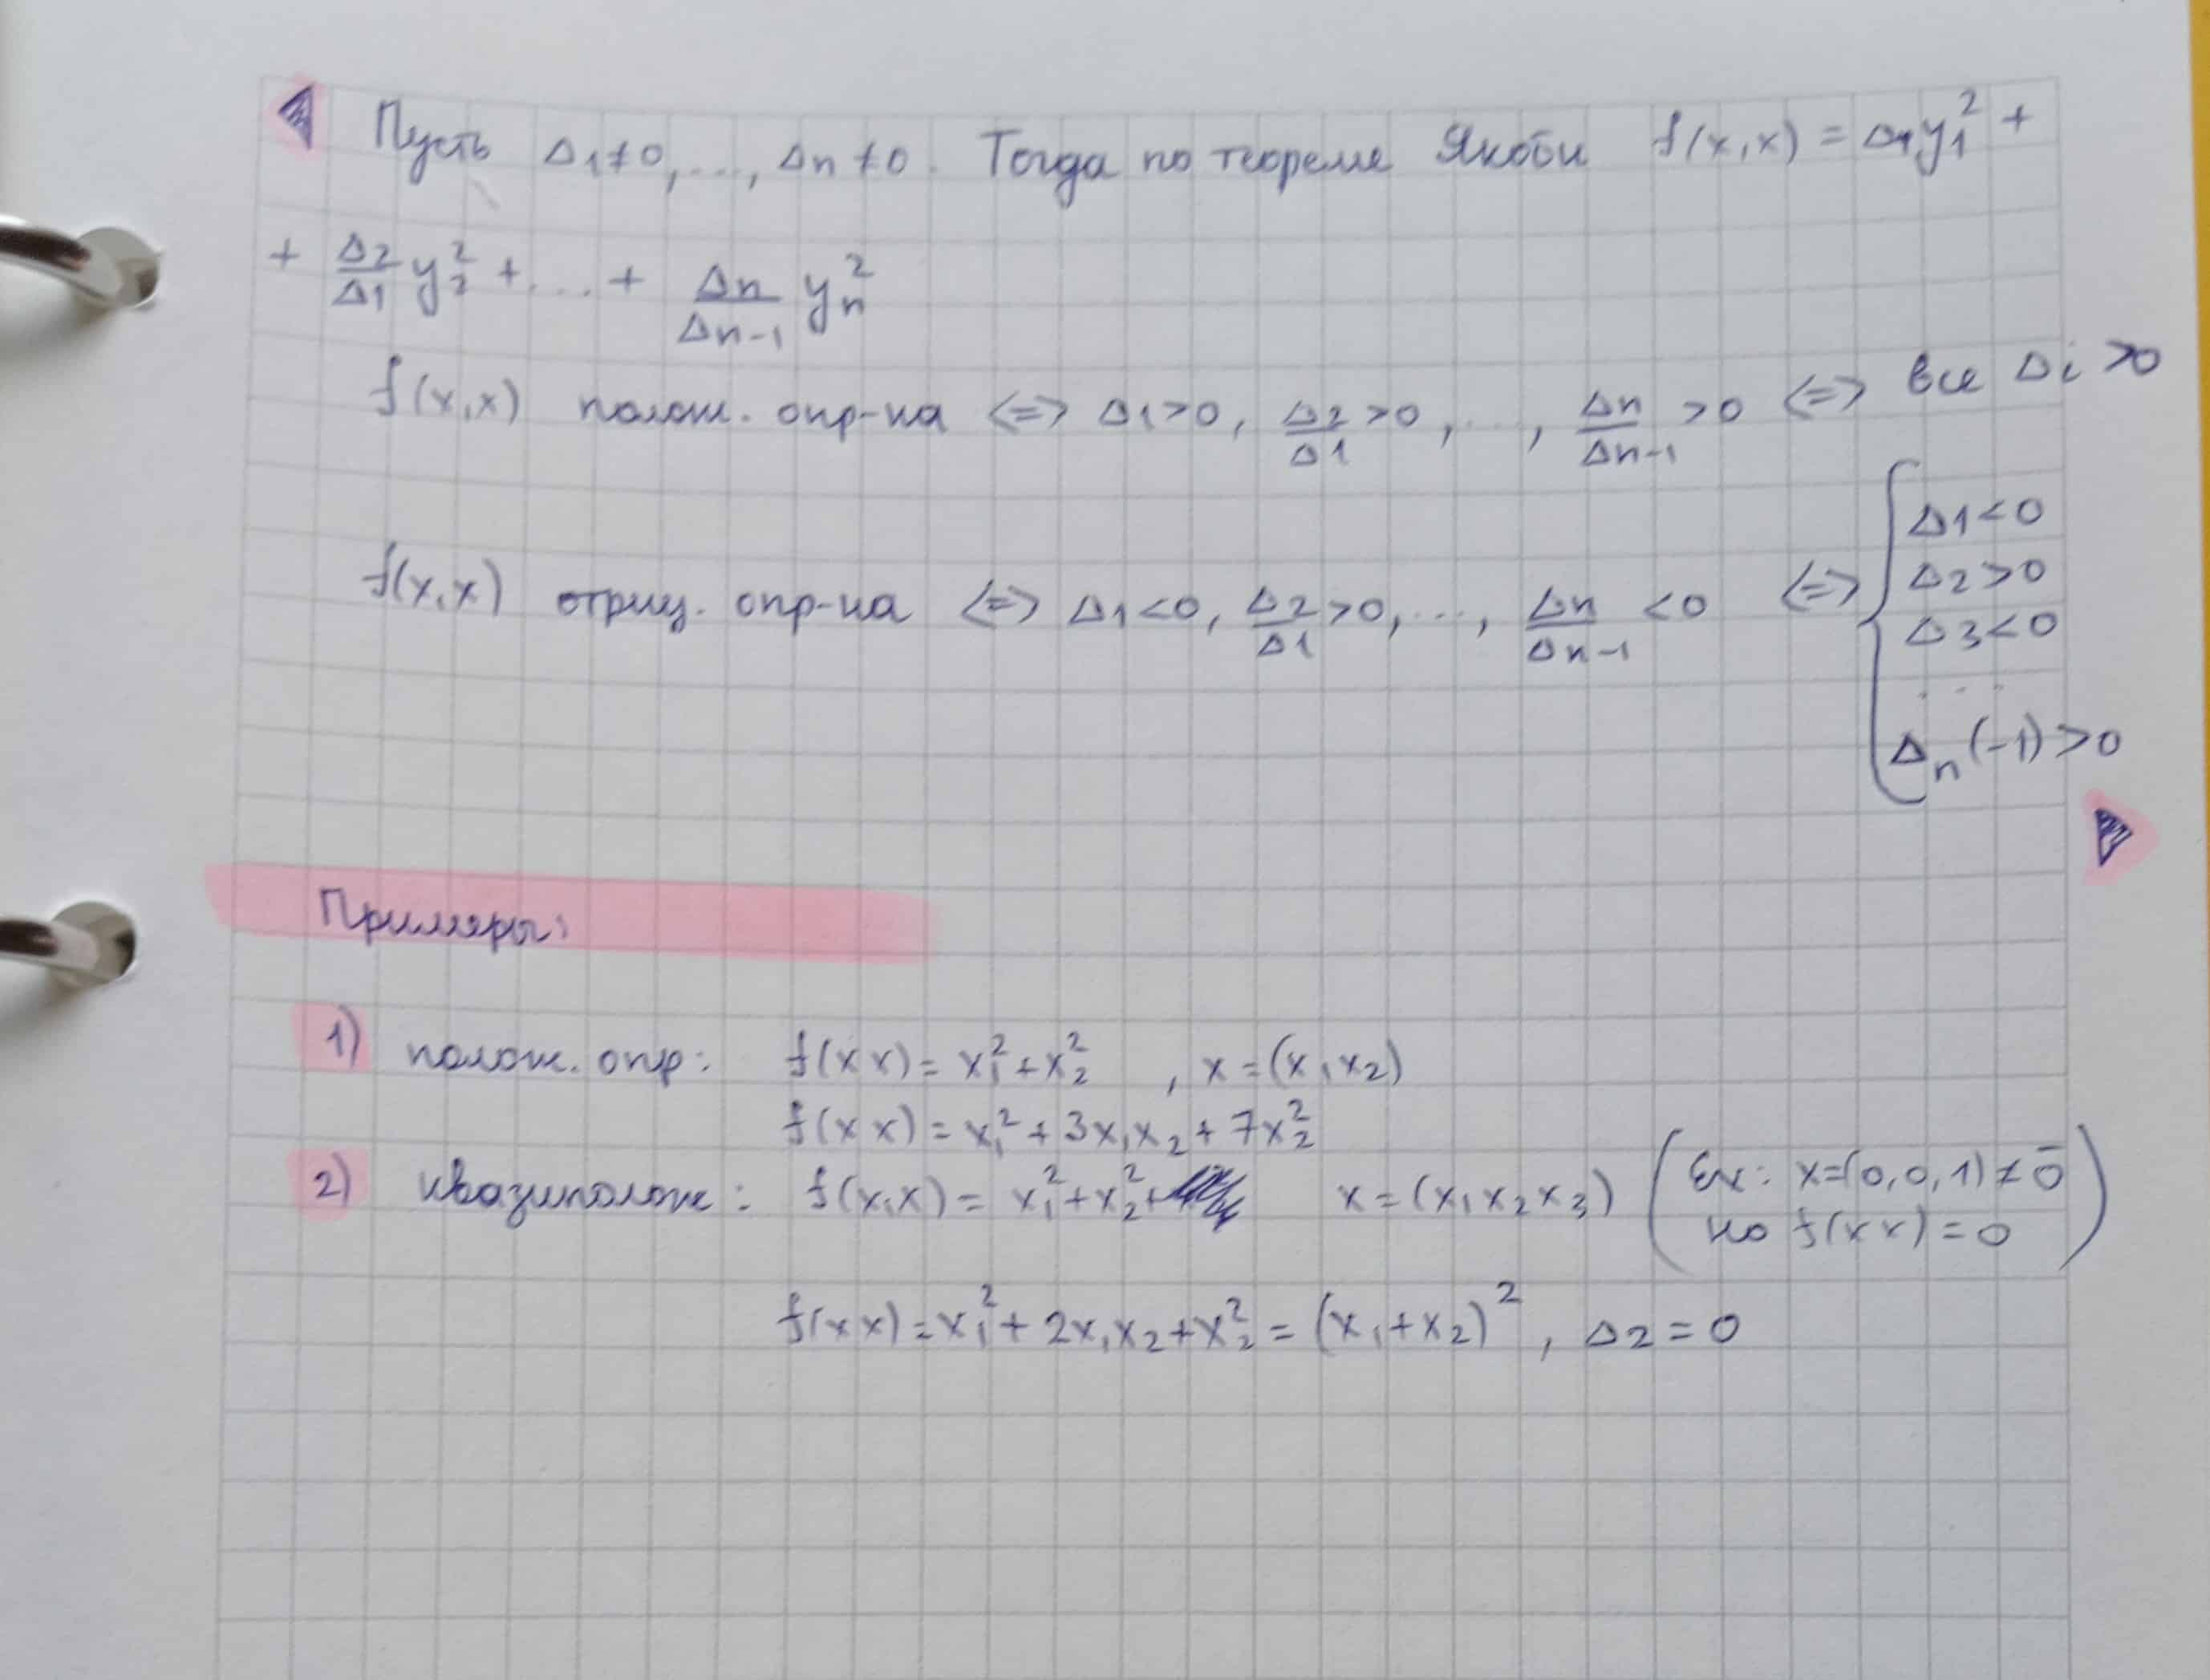 Пусть Δ1≠0,..., Δn≠0. Тогда по теореме Якоби f(x,x) = Δ1y₁² +
+ Δ2/Δ1 y₂² +...+ Δn/Δn-1 yₙ²
f(x,x) полож. опр-на <=> Δ1>0, Δ2/Δ1 >0,..., Δn/Δn-1 >0 <=> все Δi >0
f(x,x) отриц. опр-на <=> Δ1<0, Δ2/Δ1 >0,..., Δn/Δn-1 <0 <=> { Δ1<0
Δ2>0
Δ3<0
...
Δₙ(-1)>0
Примеры:
1) полож. опр: f(x x) = x₁²+x₂² , x=(x₁x₂)
f(x x) = x₁² + 3x₁x₂ + 7x₂²
2) квазиполож: f(x,x) = x₁²+x₂²+ x=(x₁x₂x₃) (Ex: x=(0,0,1)≠0̄
но f(x x)=0)
f(x x) = x₁² + 2x₁x₂+x₂² = (x₁+x₂)², Δ2=0